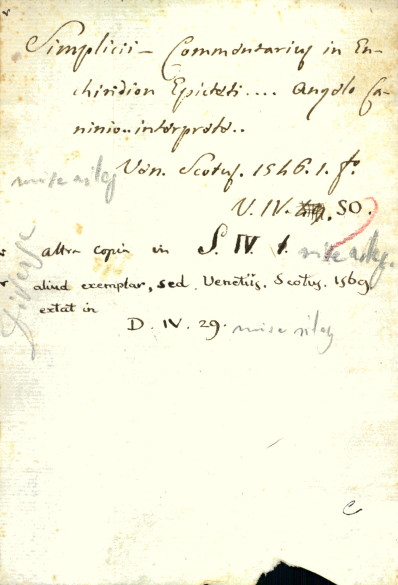 Simplicii - Commentarius in En-
chiridion Epicteti.... Angelo Ca-
ninio.. interprete..
Ven. Scotus. 1546. 1. fo.
V. IV. SO.
altra copia in S. IV. 1.
aliud exemplar, sed Venetiis. Scotus. 1569
extat in
D. IV. 29.
C